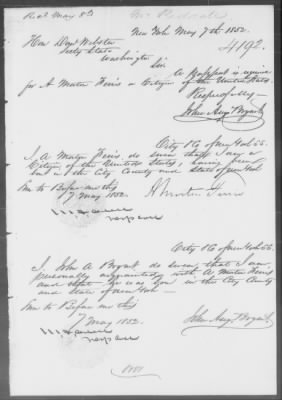 Recd May 8th
New York May 7th 1852.
4192.
Hon Danl Webster
Secty State
Washington
Sir
A Passport is required
for A Morton Ferris a Citizen of the United States
Respectfully
John Augt Bryant.
City & Co of New York SS.
I A Morton Ferris, do swear that I am a
Citizen of the United States, having been
born in the City County and State of New York
Swn to Before me this
7 May 1852.
A Morton Ferris
City & Co of New York SS.
I, John A Bryant do swear that I am
personally acquainted with A Morton Ferris
and that he was born in the City County
and State of New York
Swn to Before me this
7 May 1852.
John Augt Bryant.